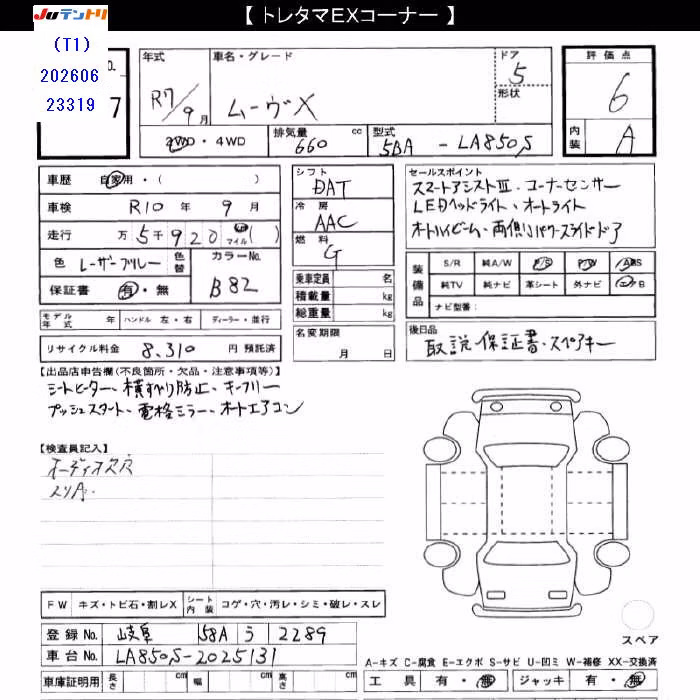 【 トレタマEXコーナー 】
Juテントリ
(T1)
202606
23319
No.
7
年式 R7/9月
車名・グレード ムーヴX
ドア 5
形状
評価点 6
内装 A
2WD・4WD
排気量 660 cc
型式 5BA - LA850S
車歴 自家用・( )
車検 R10 年 9 月
走行 万 5千920 マイル( )
色 レーザーブルー 色替
カラーNo. B82
保証書 有・無
シフト DAT
冷房 AAC
燃料 G
乗車定員 名
積載量 kg
総重量 kg
名変期限 月 日
セールスポイント
スマートアシストⅢ・コーナーセンサー
LEDヘッドライト・オートライト
オートハイビーム・両側パワースライドドア
装備品
S/R 純A/W P/S P/W ABS
純TV 純ナビ 革シート 外ナビ エアB
ナビ型番:
モデル年式 年 ハンドル 左・右 ディーラー・並行
リサイクル料金 8,310 円 預託済
後日品 取説・保証書・スペアキー
【出品店申告欄(不良箇所・欠品・注意事項等)】
シートヒーター・横すべり防止・キーフリー
プッシュスタート・電格ミラー・オートエアコン
【検査員記入】
オーディオ欠穴
スリA.
FW キズ・トビ石・割レX シート内装 コゲ・穴・汚レ・シミ・破レ・スレ
登録No. 岐阜 58A う 2289
車台No. LA850S-2025131
車庫証明用 長さ cm 幅 cm 高さ cm
スペア
A-キズ C-腐食 E-エクボ S-サビ U-凹ミ W-補修 XX-交換済
工具 有・無 ジャッキ 有・無